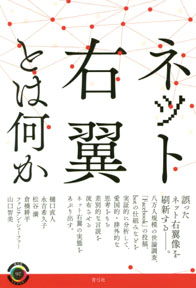 ネット
右翼
とは何か
誤った
ネット右翼像を
刷新する――。
八万人規模の世論調査、
「Facebook」の投稿、
botの仕組みなどを
実証的に分析して、
愛国的・排外的な
思考をもち
差別的な言説を
ネット右翼の実態を
あぶり出す。
樋口直人
永吉希久子
松谷 満
倉橋耕平
ファビアン・シェーファー
山口智美
青弓社